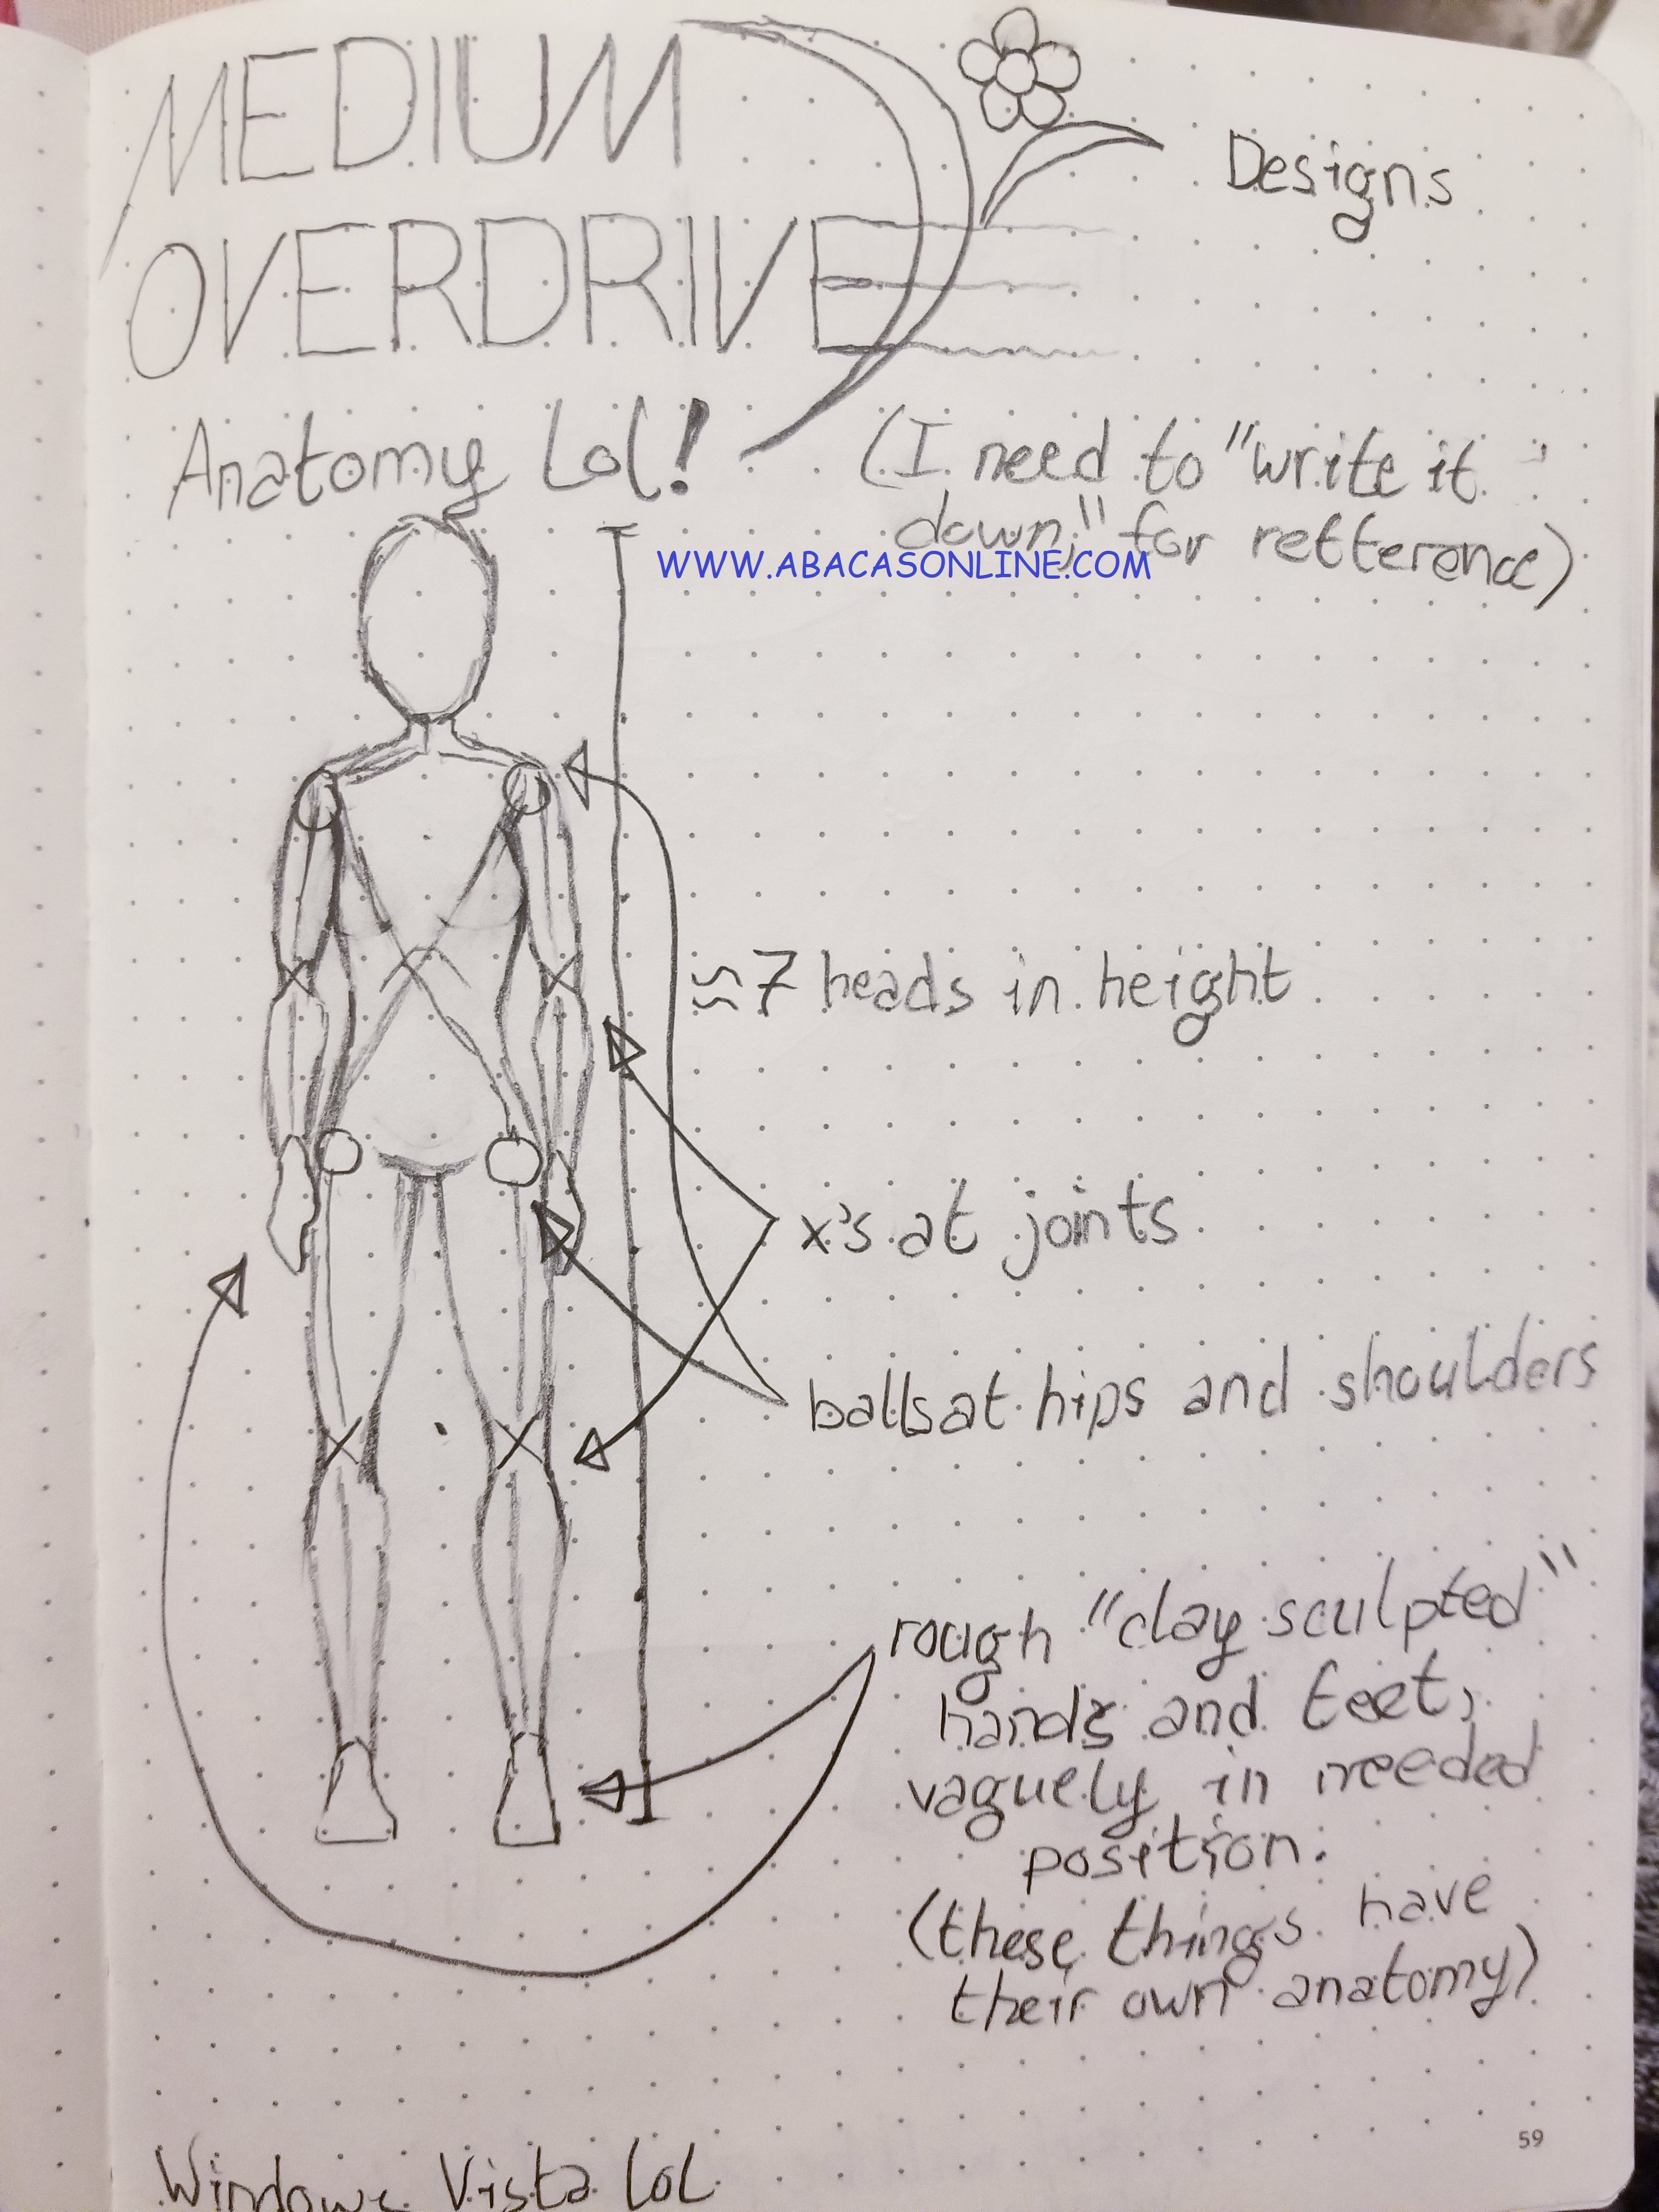 MEDIUM
OVERDRIVE
Designs
Anatomy Lol!
(I need to "write it
down," for refference)
WWW.ABACASONLINE.COM
≈7 heads in height
x's at joints
balls at hips and shoulders
rough "clay sculpted"
hands and feet,
vaguely in needed
position.
(these things have
their own anatomy)
59
Windows Vista LoL